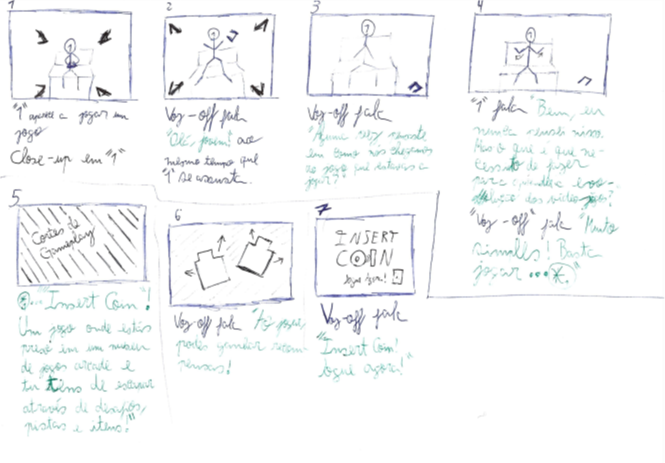 1
"1" a jogar um
jogo
Close-up em "1"
2
Voz-off fala
"Olá, jovem!" ao
mesmo tempo que
"1" se assusta.
3
Voz-off fala
em como nós chegamos
ao jogo que estavas a
jogar?"
4
"1" fala "Bem, eu
nunca pensei nisso.
Mas o que é que
de fazer
para
dos video jogos?"
"Voz-off" fala "Muito
simples! Basta
jogar ...
5
Cortes de
Gameplay
... "Insert Coin"!
Um jogo onde estás
preso em um museu
de jogos arcade e
tu tens de escapar
através de desafios,
pistas e itens!"
6
Voz-off fala "Ao jogar,
podes ganhar recom-
pensas!
7
INSERT
COIN
Voz-off fala
"Insert Coin!
Jogue agora!"